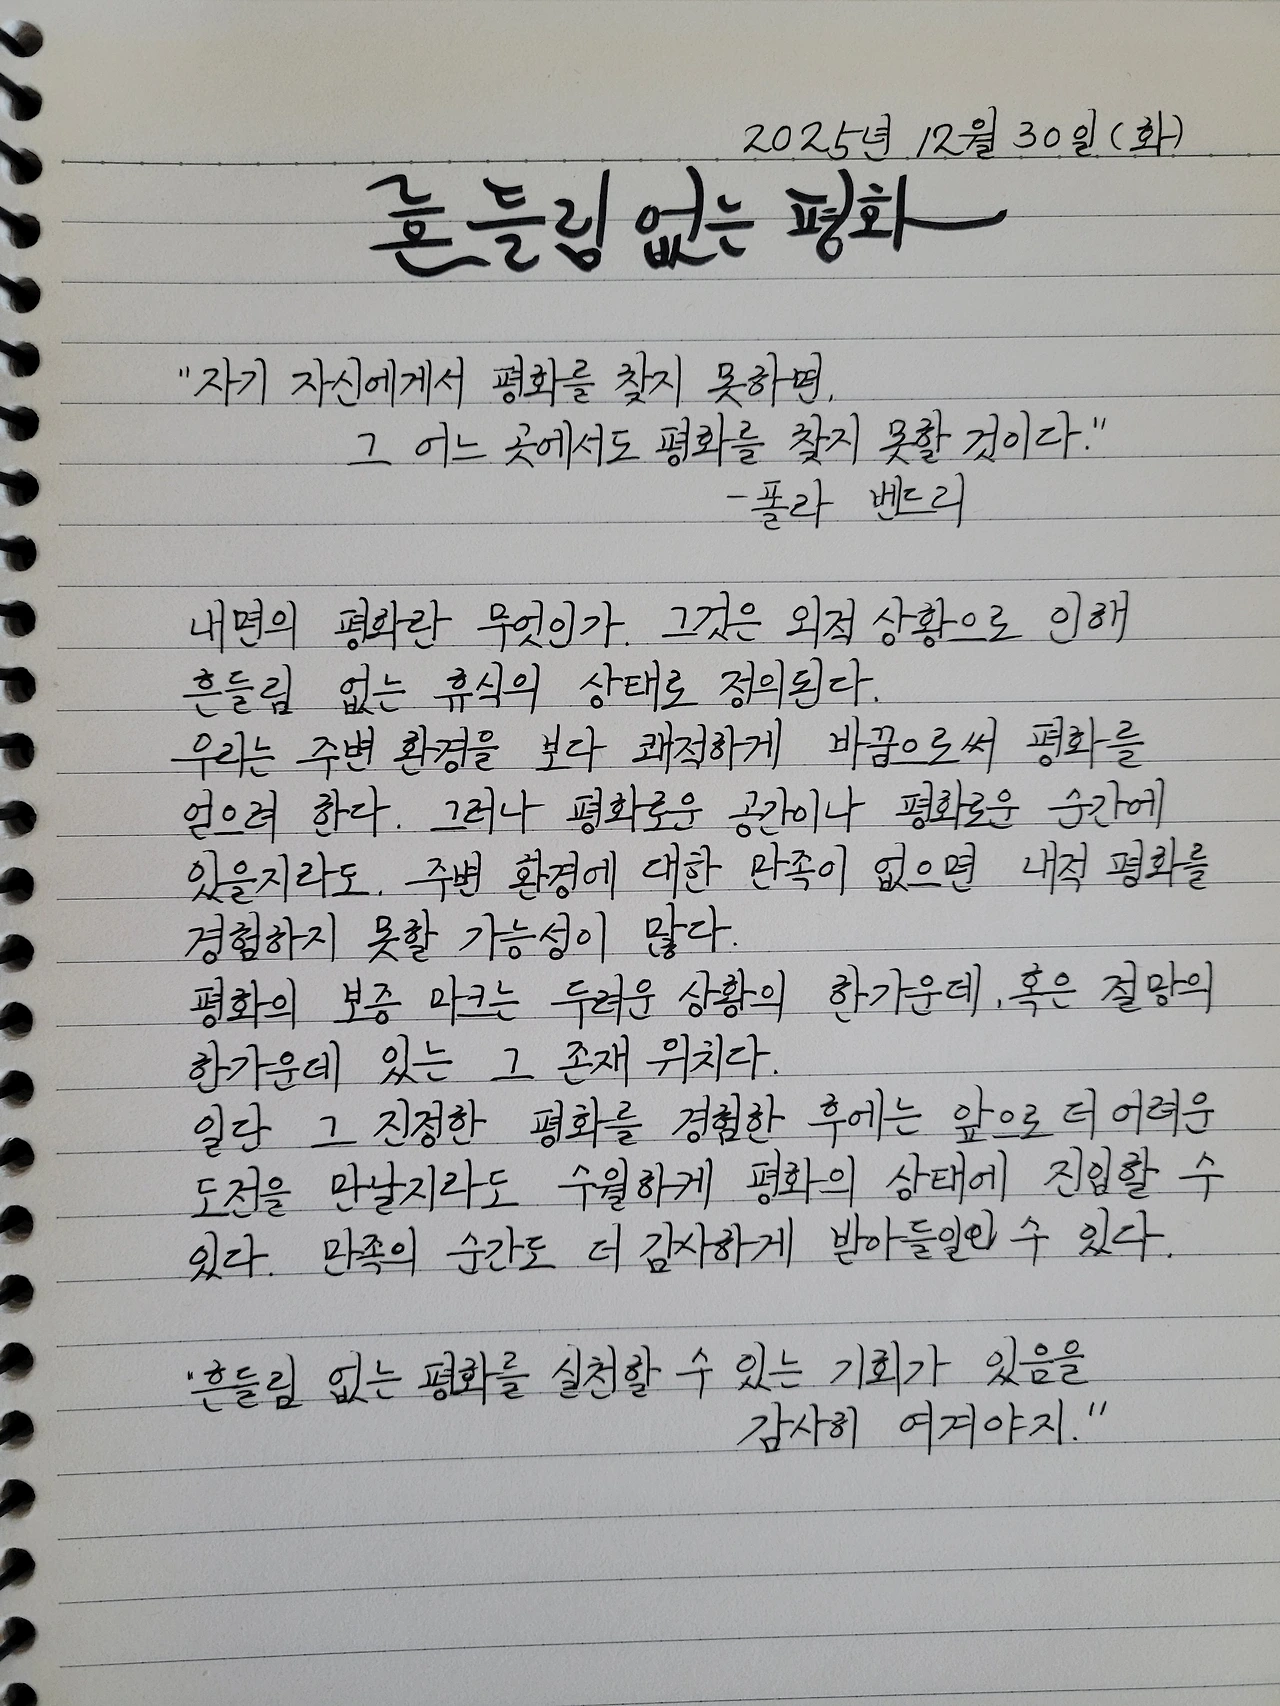 2025년 12월 30일(화)
흔들림 없는 평화
"자기 자신에게서 평화를 찾지 못하면,
그 어느 곳에서도 평화를 찾지 못할 것이다."
- 폴라 벤드리
내면의 평화란 무엇인가. 그것은 외적 상황으로 인해
흔들림 없는 휴식의 상태로 정의된다.
우리는 주변 환경을 보다 쾌적하게 바꿈으로써 평화를
얻으려 한다. 그러나 평화로운 공간이나 평화로운 순간에
있을지라도, 주변 환경에 대한 만족이 없으면 내적 평화를
경험하지 못할 가능성이 많다.
평화의 보증 마크는 두려운 상황의 한가운데, 혹은 절망의
한가운데 있는 그 존재 위치다.
일단 그 진정한 평화를 경험한 후에는 앞으로 더 어려운
도전을 만날지라도 수월하게 평화의 상태에 진입할 수
있다. 만족의 순간도 더 감사하게 받아들일 수 있다.
"흔들림 없는 평화를 실천할 수 있는 기회가 있음을
감사히 여겨야지."